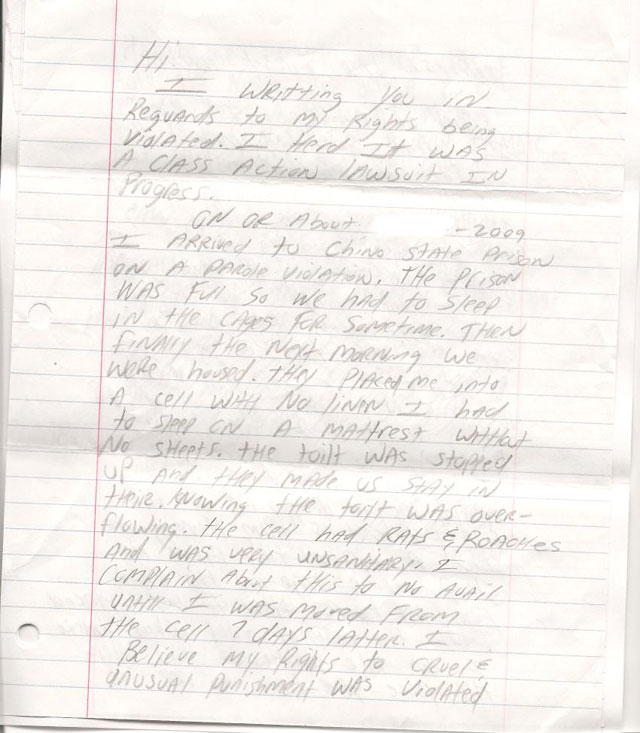 Hi
I WRITTING you IN
Reguards to my Rights being
violated. I Herd It WAS
A CLASS ACTION LAWSUIT IN
Progress.
ON OR About -2009
I ARRIVED to Chino state Prison
ON A PAROLE VIOLATION. THE PRISON
WAS FUl So we had to Sleep
IN the CAGES FOR Sometime. THEN
FINALLY the Next MORNING WE
WERE housed. they PLACED me into
A cell WITH NO liNEN I HAD
to sleep ON A MATTREST WITHOUT
NO SHEETS. the toilt WAS stopped
UP AND they MADE US STAY IN
their. KNOWING the toilt WAS OVER-
flowing. the cell had RATS & ROACHES
AND WAS very UNSANITARY. I
COMPLAIN About this to NO AVAIL
UNTIll I WAS moved FROM
the cell 7 days LATTER. I
Believe my Rights to CRUEL &
UNUSUAL PUNISHMENT WAS VIOLATED